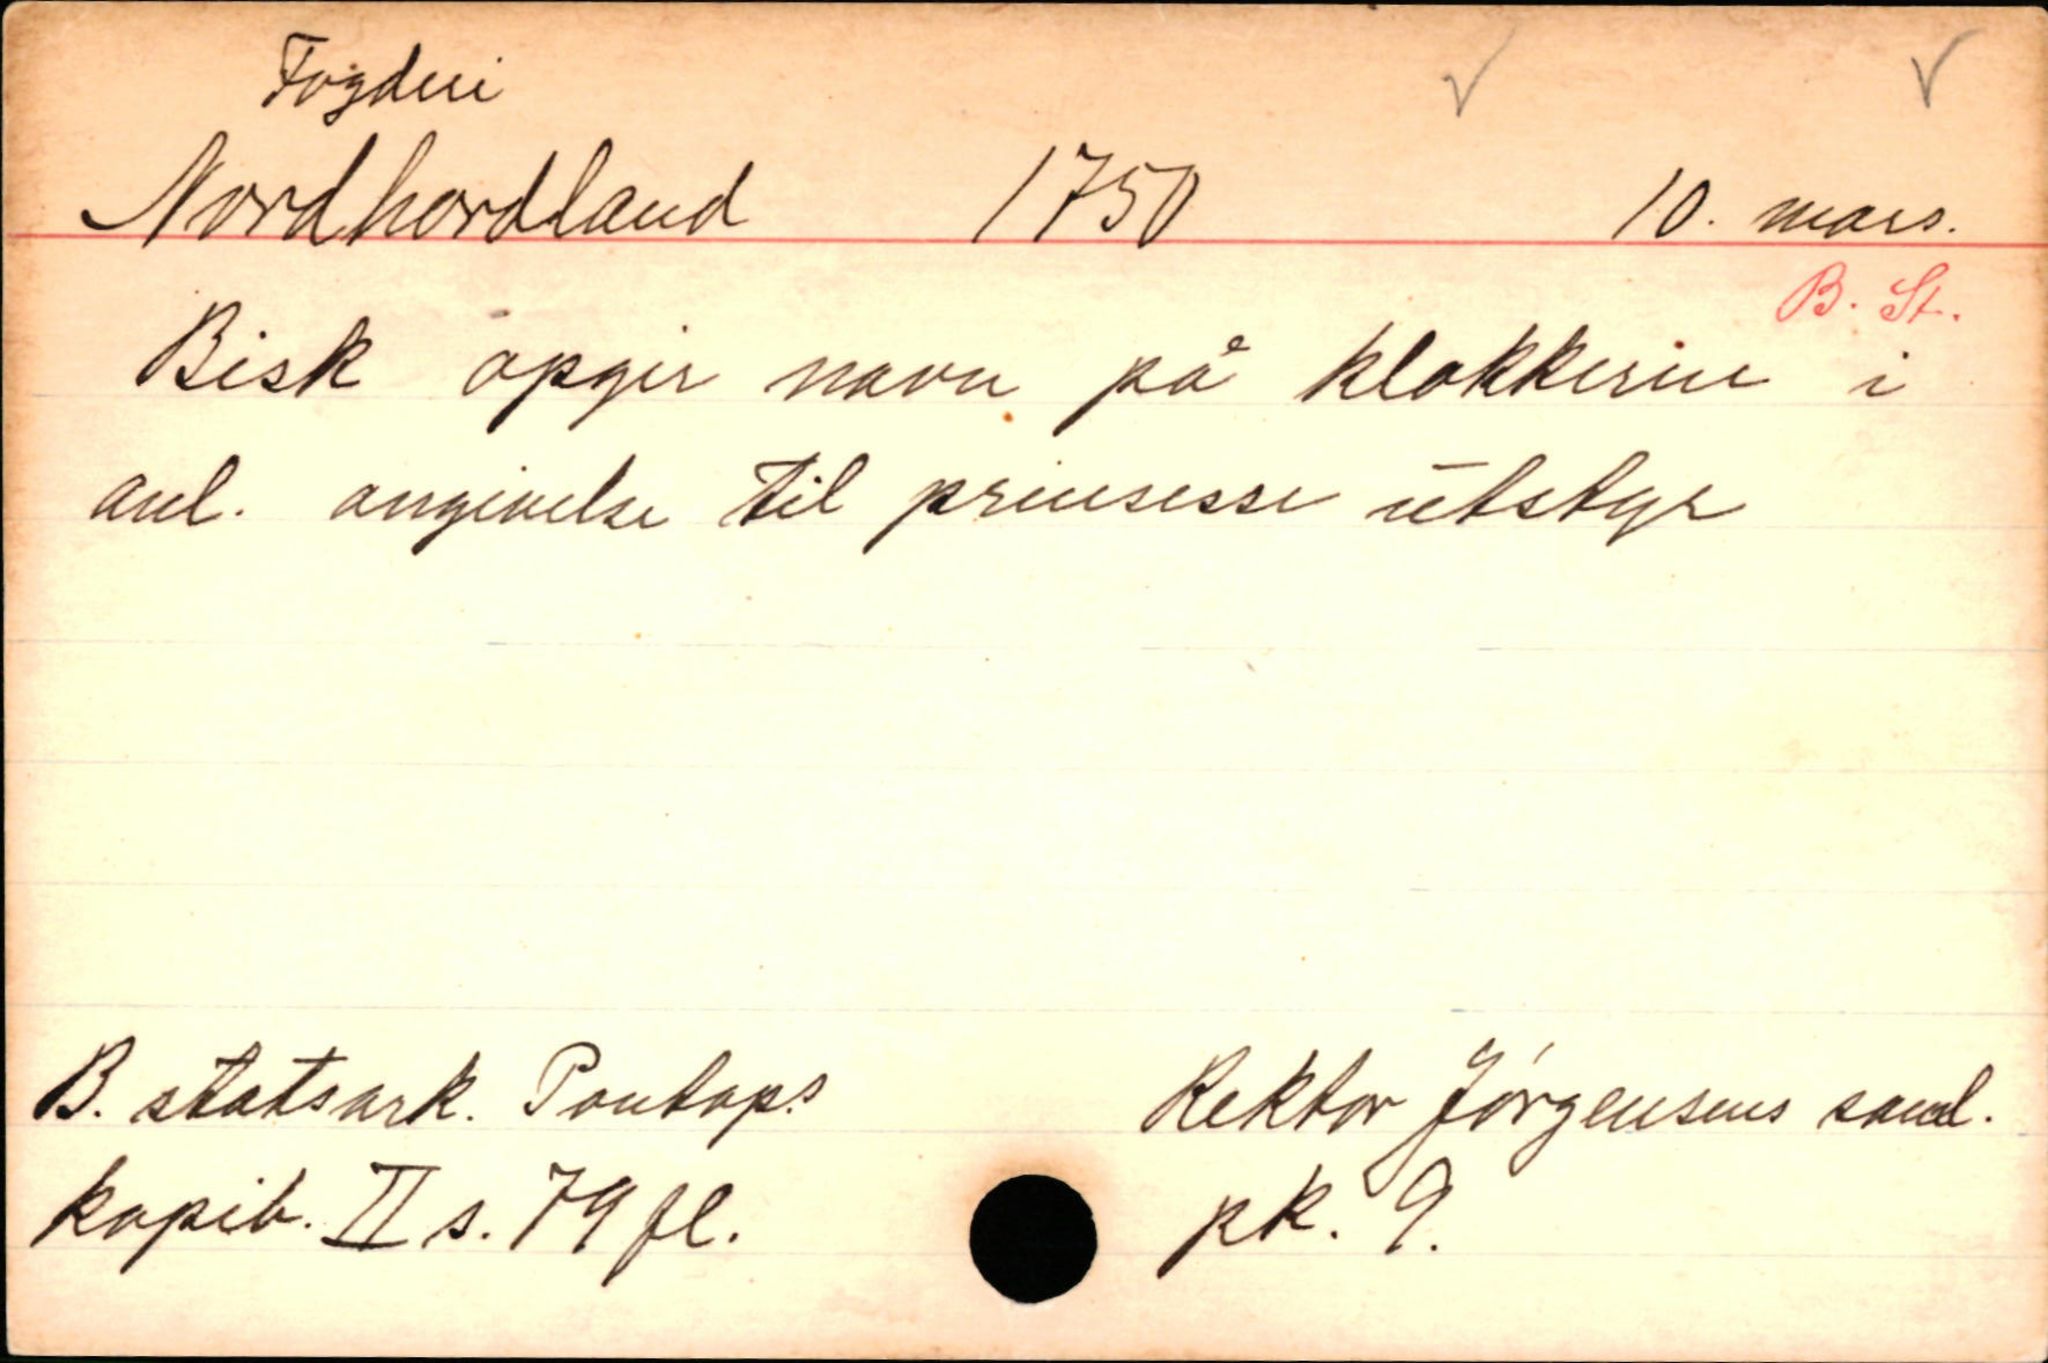 Fogderi
Nordhordland 1750 10. mars.
B. St.
Bisk opgir navn på klokkerne i
anl. angivelse til prinsesse utstyr
B. statsark. Pontop.s Rektor Jörgensens saml.
kopib. II s. 79 fl. pk. 9.